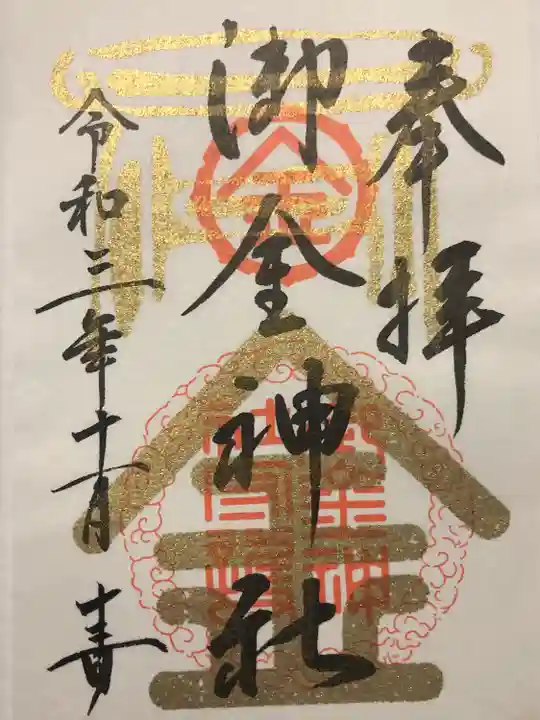 奉拝
御金神社
令和三年十一月吉
金